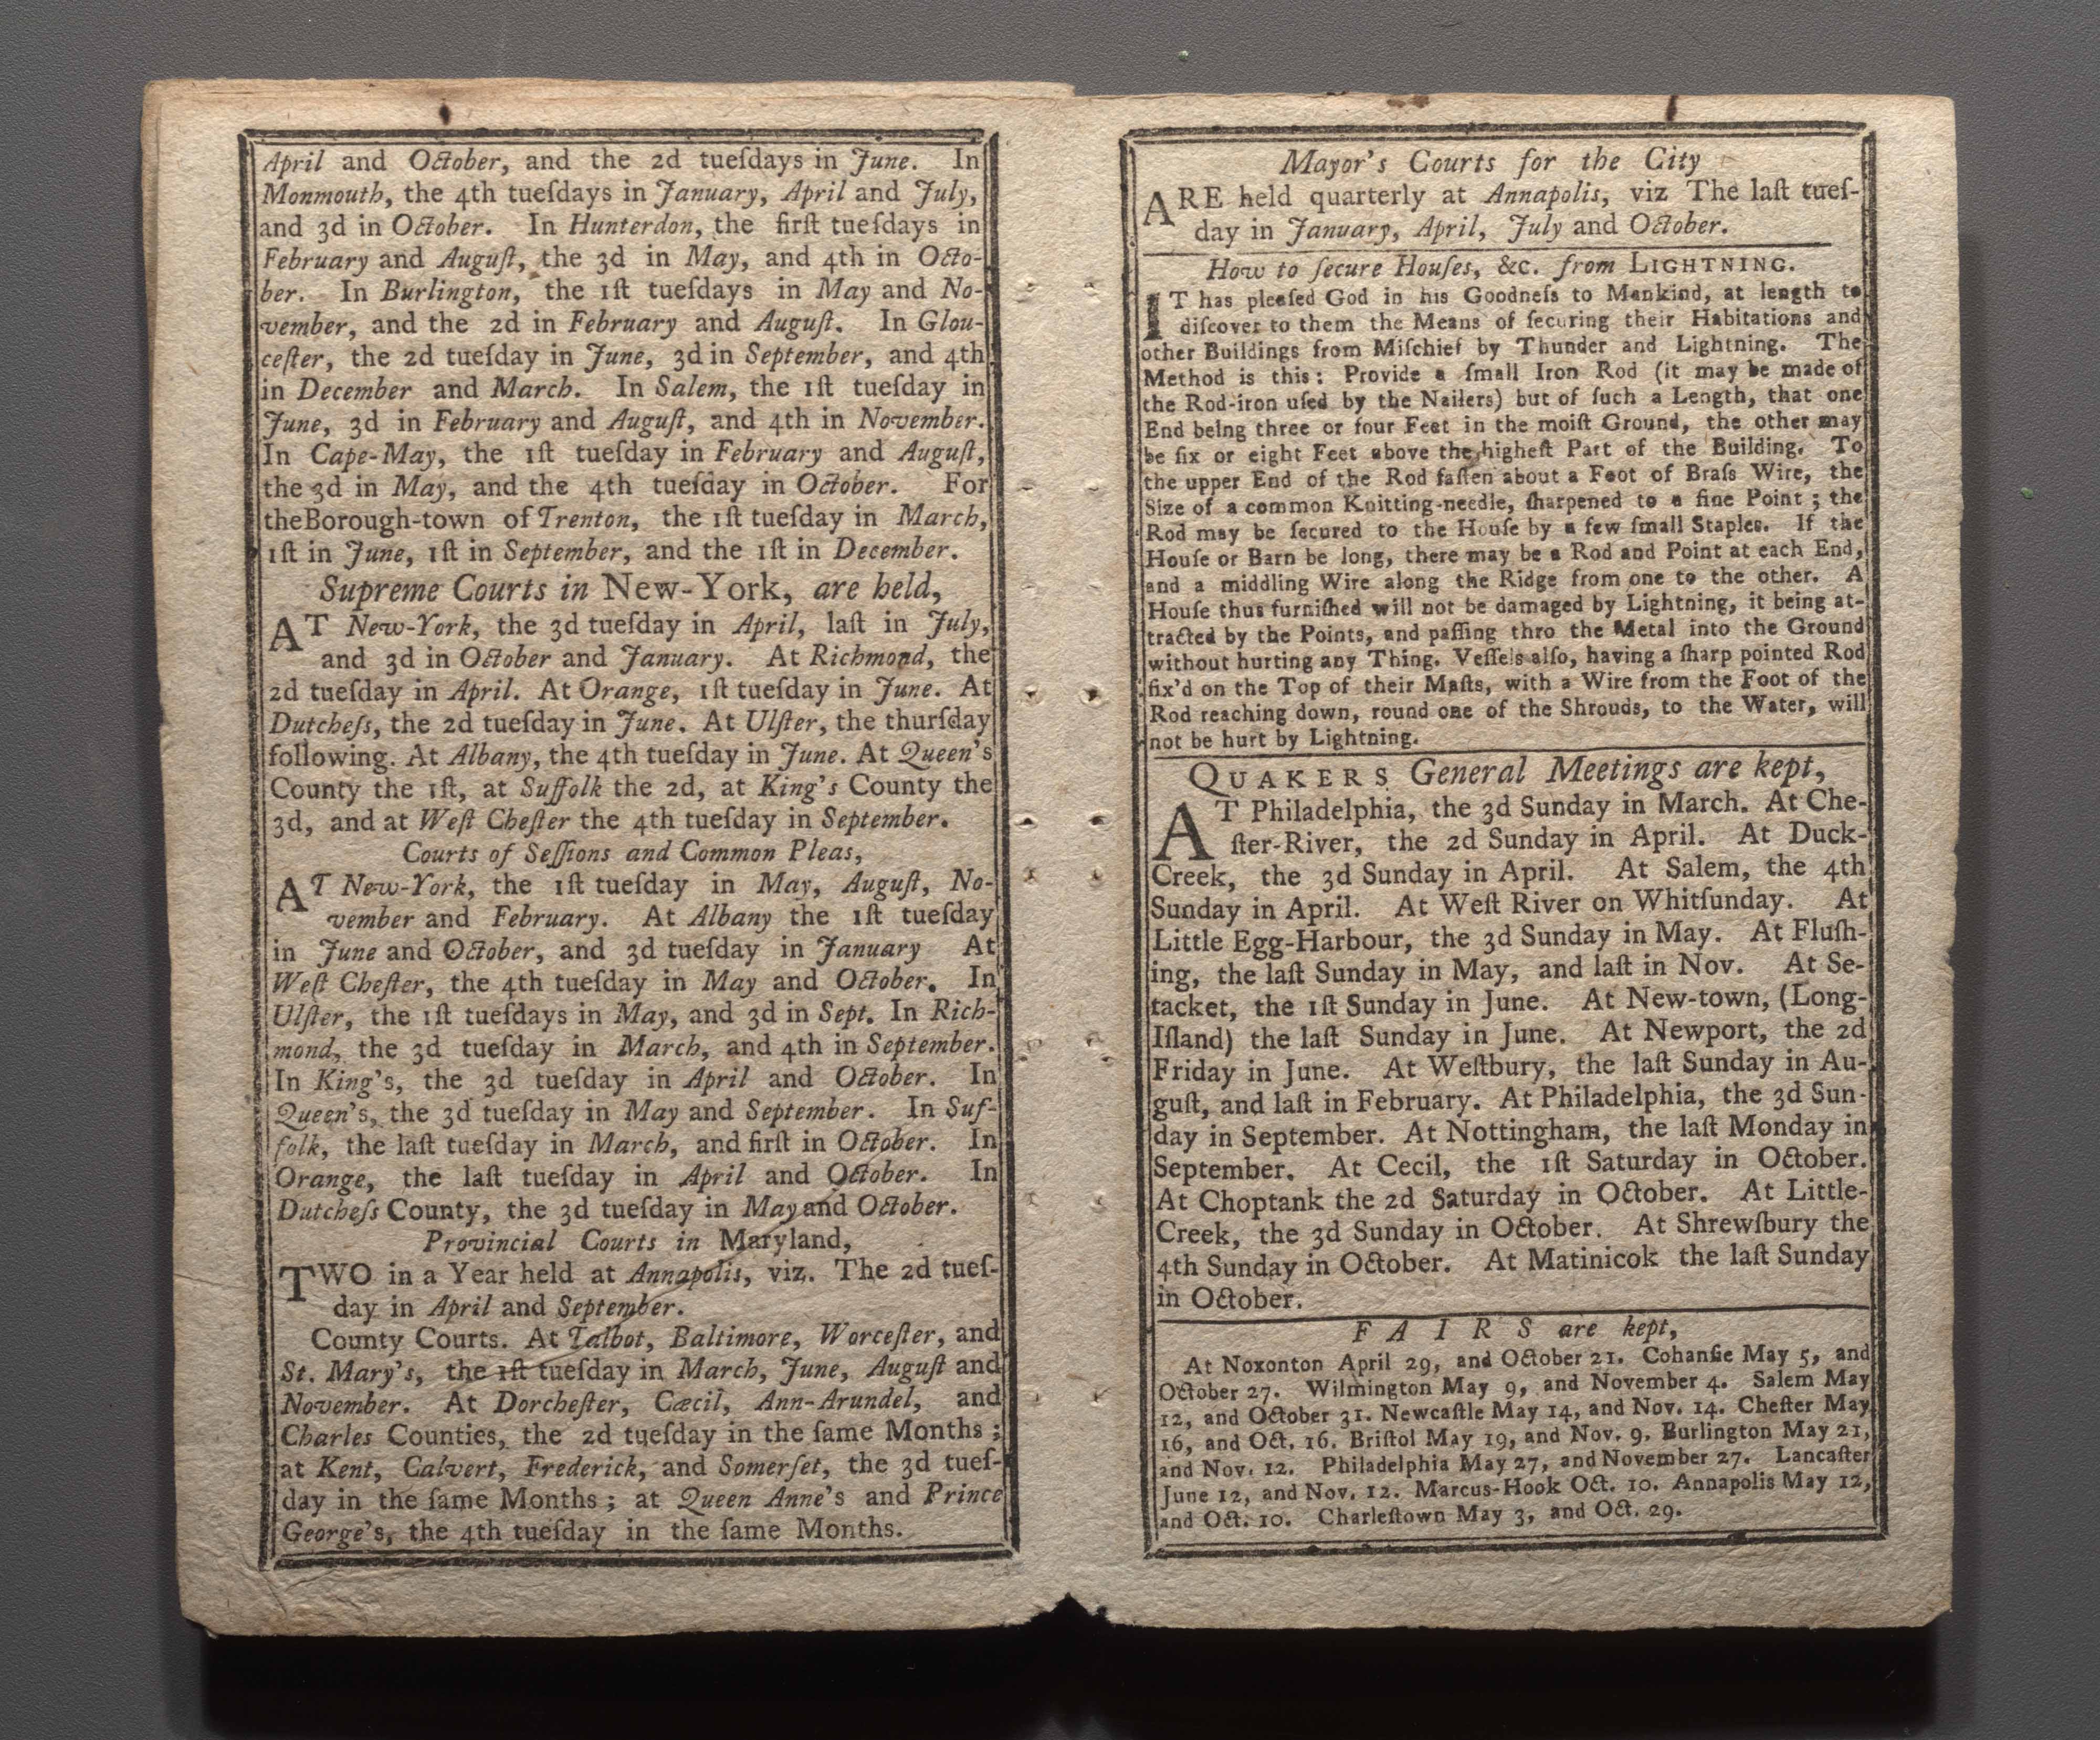 April and October, and the 2d tueſdays in June. In
Monmouth, the 4th tueſdays in January, April and July,
and 3d in October. In Hunterdon, the firſt tueſdays in
February and Auguſt, the 3d in May, and 4th in Octo-
ber. In Burlington, the 1ſt tueſdays in May and No-
vember, and the 2d in February and Auguſt. In Glou-
ceſter, the 2d tueſday in June, 3d in September, and 4th
in December and March. In Salem, the 1ſt tueſday in
June, 3d in February and Auguſt, and 4th in November.
In Cape-May, the 1ſt tueſday in February and Auguſt,
the 3d in May, and the 4th tueſday in October. For
theBorough-town of Trenton, the 1ſt tueſday in March,
1ſt in June, 1ſt in September, and the 1ſt in December.
Supreme Courts in New-York, are held,
AT New-York, the 3d tueſday in April, laſt in July,
and 3d in October and January. At Richmond, the
2d tueſday in April. At Orange, 1ſt tueſday in June. At
Dutcheſs, the 2d tueſday in June. At Ulſter, the thurſday
following. At Albany, the 4th tueſday in June. At Queen's
County the 1ſt, at Suffolk the 2d, at King's County the
3d, and at Weſt Cheſter the 4th tueſday in September.
Courts of Seſſions and Common Pleas,
AT New-York, the 1ſt tueſday in May, Auguſt, No-
vember and February. At Albany the 1ſt tueſday
in June and October, and 3d tueſday in January At
Weſt Cheſter, the 4th tueſday in May and October. In
Ulſter, the 1ſt tueſdays in May, and 3d in Sept. In Rich-
mond, the 3d tueſday in March, and 4th in September.
In King's, the 3d tueſday in April and October. In
Queen's, the 3d tueſday in May and September. In Suf-
folk, the laſt tueſday in March, and firſt in October. In
Orange, the laſt tueſday in April and October. In
Dutcheſs County, the 3d tueſday in May and October.
Provincial Courts in Maryland,
TWO in a Year held at Annapolis, viz. The 2d tueſ-
day in April and September.
County Courts. At Talbot, Baltimore, Worceſter, and
St. Mary's, the 1ſt tueſday in March, June, Auguſt and
November. At Dorcheſter, Cæcil, Ann-Arundel, and
Charles Counties, the 2d tueſday in the ſame Months ;
at Kent, Calvert, Frederick, and Somerſet, the 3d tueſ-
day in the ſame Months ; at Queen Anne's and Prince
George's, the 4th tueſday in the ſame Months.
Mayor's Courts for the City
ARE held quarterly at Annapolis, viz The laſt tueſ-
day in January, April, July and October.
How to ſecure Houſes, &c. from LIGHTNING.
IT has pleaſed God in his Goodneſs to Mankind, at length to
diſcover to them the Means of ſecuring their Habitations and
other Buildings from Miſchief by Thunder and Lightning. The
Method is this: Provide a ſmall Iron Rod (it may be made of
the Rod-iron uſed by the Nailers) but of ſuch a Length, that one
End being three or four Feet in the moiſt Ground, the other may
be ſix or eight Feet above the higheſt Part of the Building. To
the upper End of the Rod faſten about a Foot of Braſs Wire, the
Size of a common Knitting-needle, ſharpened to a fine Point ; the
Rod may be ſecured to the Houſe by a few ſmall Staples. If the
Houſe or Barn be long, there may be a Rod and Point at each End,
and a middling Wire along the Ridge from one to the other. A
Houſe thus furniſhed will not be damaged by Lightning, it being at-
tracted by the Points, and paſſing thro the Metal into the Ground
without hurting any Thing. Veſſels alſo, having a ſharp pointed Rod
fix'd on the Top of their Maſts, with a Wire from the Foot of the
Rod reaching down, round one of the Shrouds, to the Water, will
not be hurt by Lightning.
QUAKERS General Meetings are kept,
AT Philadelphia, the 3d Sunday in March. At Che-
ſter-River, the 2d Sunday in April. At Duck-
Creek, the 3d Sunday in April. At Salem, the 4th
Sunday in April. At Weſt River on Whitſunday. At
Little Egg-Harbour, the 3d Sunday in May. At Fluſh-
ing, the laſt Sunday in May, and laſt in Nov. At Se-
tacket, the 1ſt Sunday in June. At New-town, (Long-
Iſland) the laſt Sunday in June. At Newport, the 2d
Friday in June. At Weſtbury, the laſt Sunday in Au-
guſt, and laſt in February. At Philadelphia, the 3d Sun-
day in September. At Nottingham, the laſt Monday in
September. At Cecil, the 1ſt Saturday in October.
At Choptank the 2d Saturday in October. At Little-
Creek, the 3d Sunday in October. At Shrewſbury the
4th Sunday in October. At Matinicok the laſt Sunday
in October.
FAIRS are kept,
At Noxonton April 29, and October 21. Cohanſie May 5, and
October 27. Wilmington May 9, and November 4. Salem May
12, and October 31. Newcaſtle May 14, and Nov. 14. Cheſter May
16, and Oct. 16. Briſtol May 19, and Nov. 9. Burlington May 21,
and Nov. 12. Philadelphia May 27, and November 27. Lancaſter
June 12, and Nov. 12. Marcus-Hook Oct. 10. Annapolis May 12,
and Oct. 10. Charleſtown May 3, and Oct. 29.